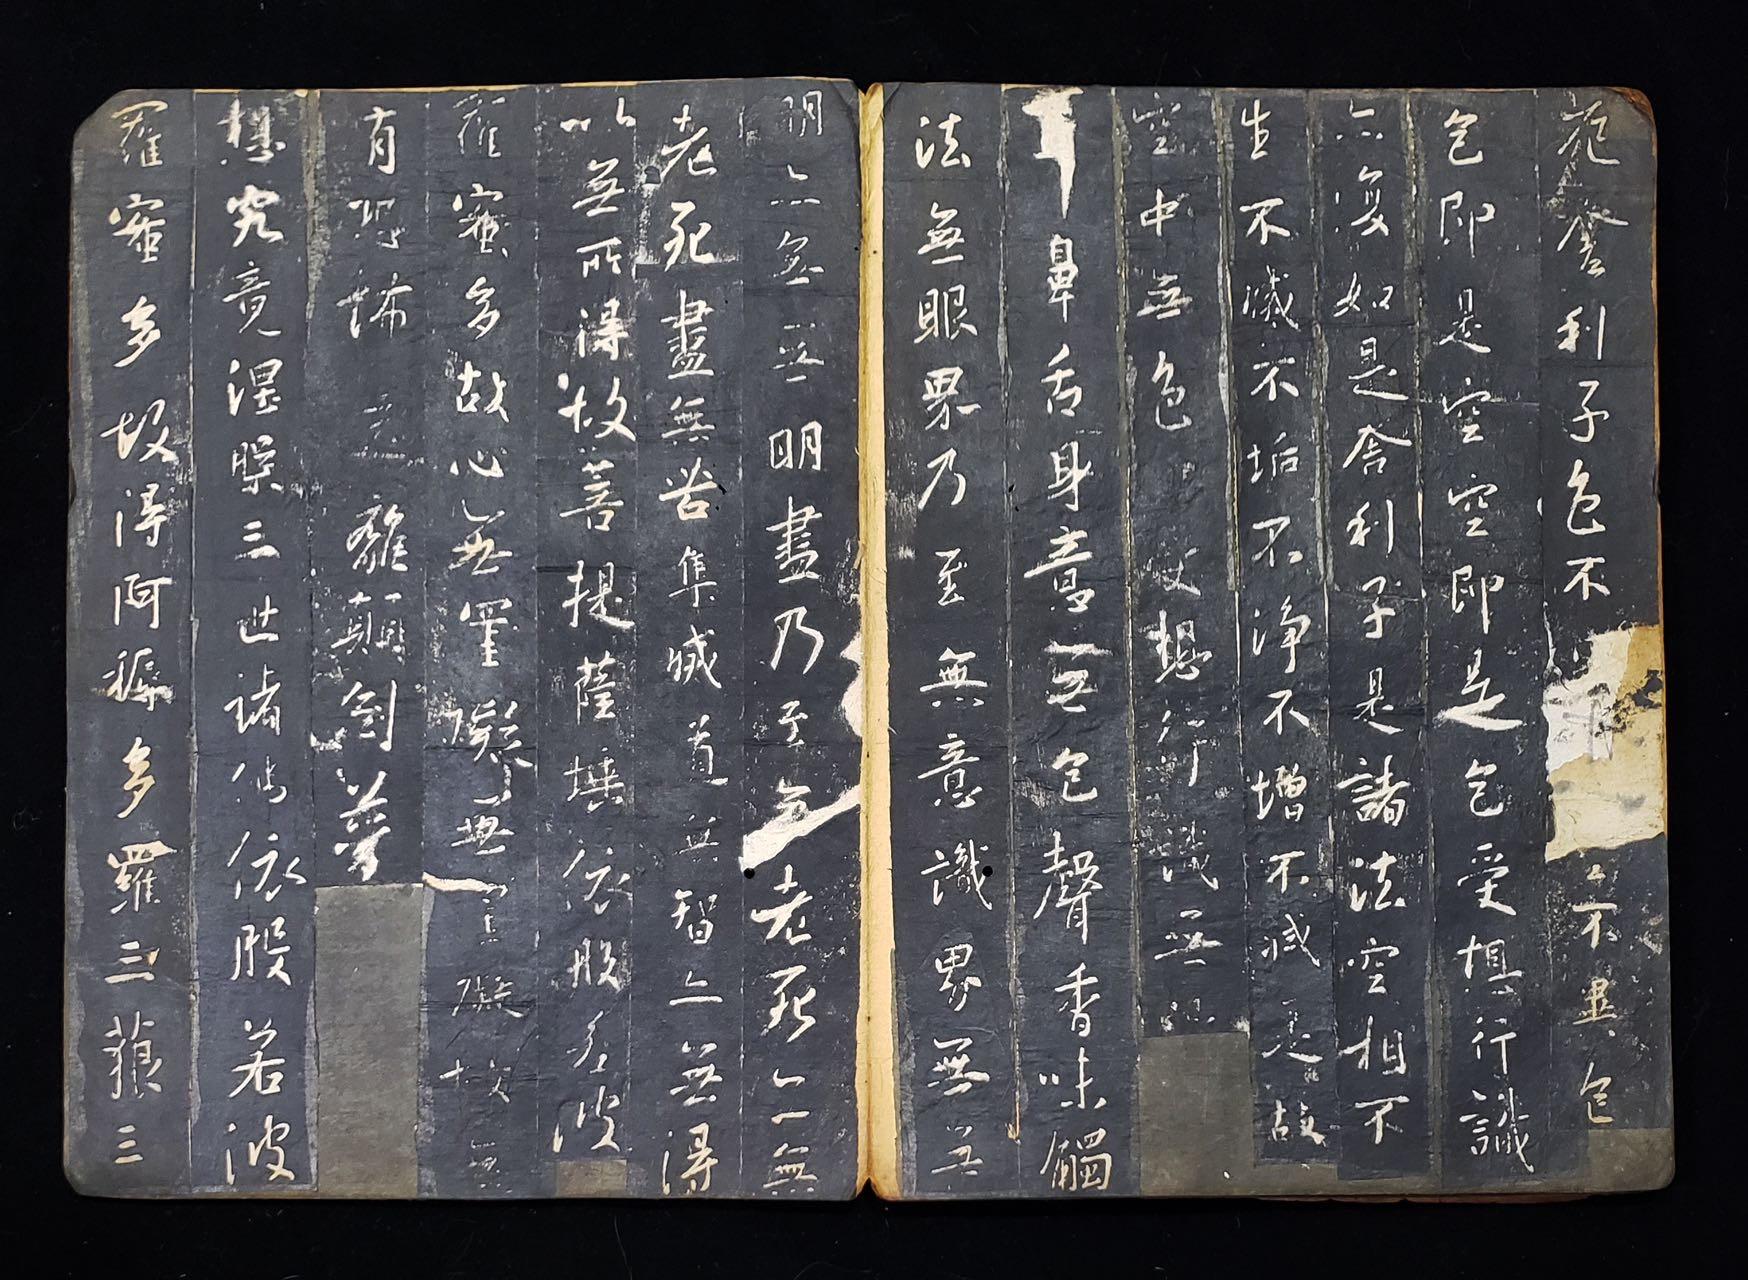 厄舍利子色不〻不異色
色即是空空即是色受想行識
亦復如是舍利子是諸法空相不
生不滅不垢不淨不增不減是故
空中無色無受想行識無眼
耳鼻舌身意無色聲香味觸
法無眼界乃至無意識界無無
明亦無無明盡乃至無老死亦無
老死盡無苦集滅道無智亦無得
以無所得故菩提薩埵依般若波
羅蜜多故心無罣礙無罣礙故無
有恐怖遠離顛倒夢
想究竟涅槃三世諸佛依般若波
羅蜜多故得阿耨多羅三藐三